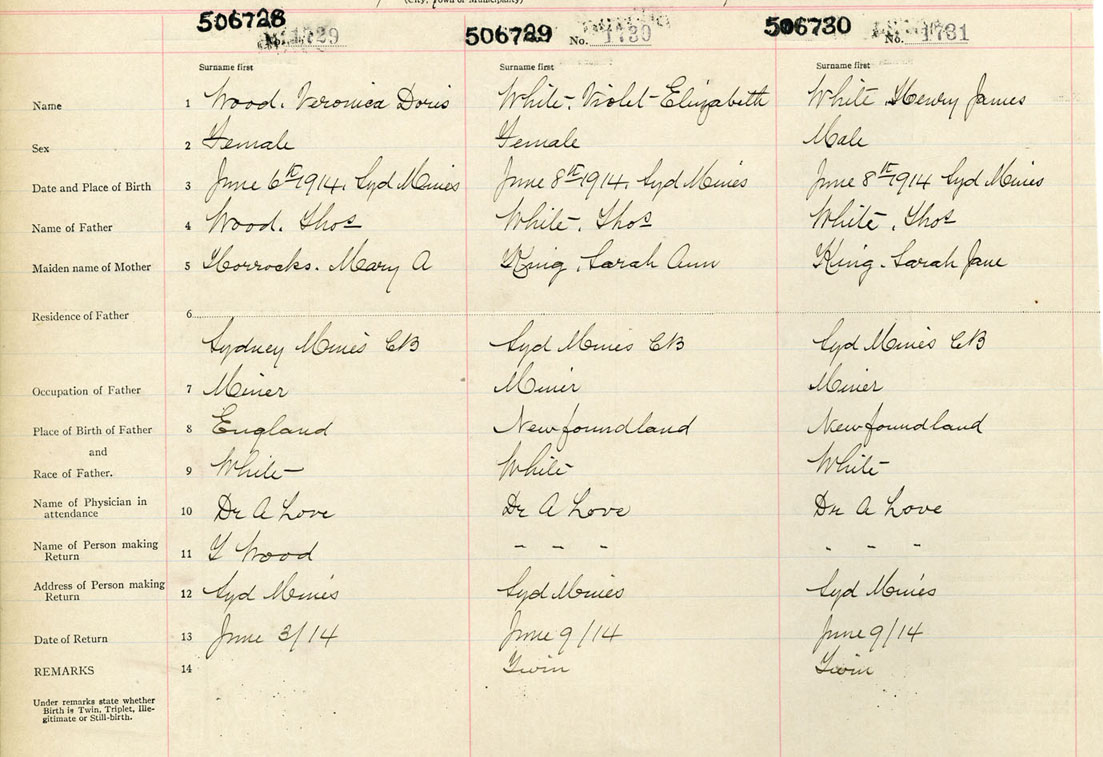 (City, Town or Municipality)
506728 No. 1729 506729 No. 1730 506730 No. 1731
Surname first Surname first Surname first
Name 1 Wood. Veronica Doris White. Violet Elizabeth White. Henry James
Sex 2 Female Female Male
Date and Place of Birth 3 June 6th 1914. Syd Mines June 8th 1914. Syd Mines June 8th 1914 Syd Mines
Name of Father 4 Wood. Thos White. Thos White. Thos
Maiden name of Mother 5 Horrocks. Mary A King. Sarah Ann King. Sarah Jane
Residence of Father 6
Sydney Mines CB Syd Mines CB Syd Mines CB
Occupation of Father 7 Miner Miner Miner
Place of Birth of Father 8 England Newfoundland Newfoundland
and
Race of Father. 9 White White White
Name of Physician in attendance 10 Dr A Love Dr A Love Dr A Love
Name of Person making Return 11 T Wood - - - - - -
Address of Person making Return 12 Syd Mines Syd Mines Syd Mines
Date of Return 13 June 3/14 June 9/14 June 9/14
REMARKS 14 Twin Twin
Under remarks state whether
Birth is Twin, Triplet, Ille-
gitimate or Still-birth.